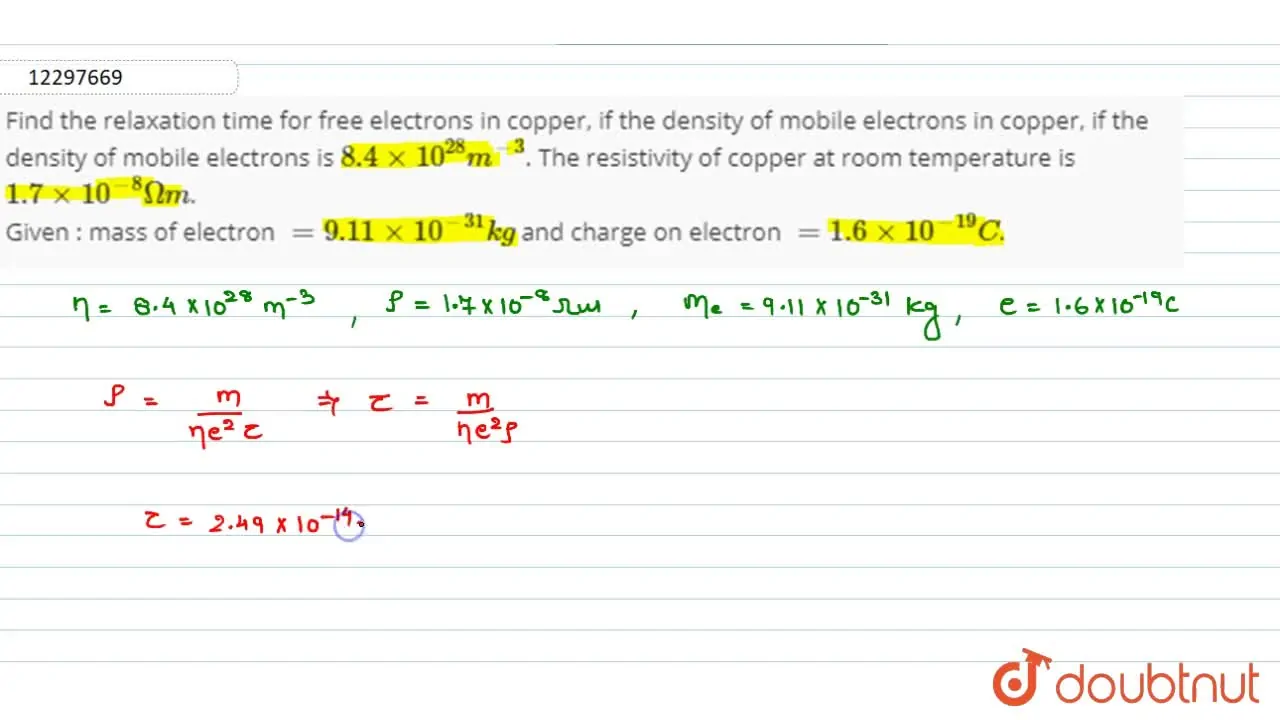 12297669
Find the relaxation time for free electrons in copper, if the density of mobile electrons in copper, if the
density of mobile electrons is 8.4 × 10²⁸m⁻³. The resistivity of copper at room temperature is
1.7 × 10⁻⁸Ωm.
Given : mass of electron = 9.11 × 10⁻³¹kg and charge on electron = 1.6 × 10⁻¹⁹C.
η = 8.4 × 10²⁸ m⁻³ , ρ = 1.7 × 10⁻⁸ Ωm , me = 9.11 × 10⁻³¹ kg , e = 1.6 × 10⁻¹⁹ C
ρ = m / ηe²τ ⇒ τ = m / ηe²ρ
τ = 2.49 × 10⁻¹⁴
doubtnut